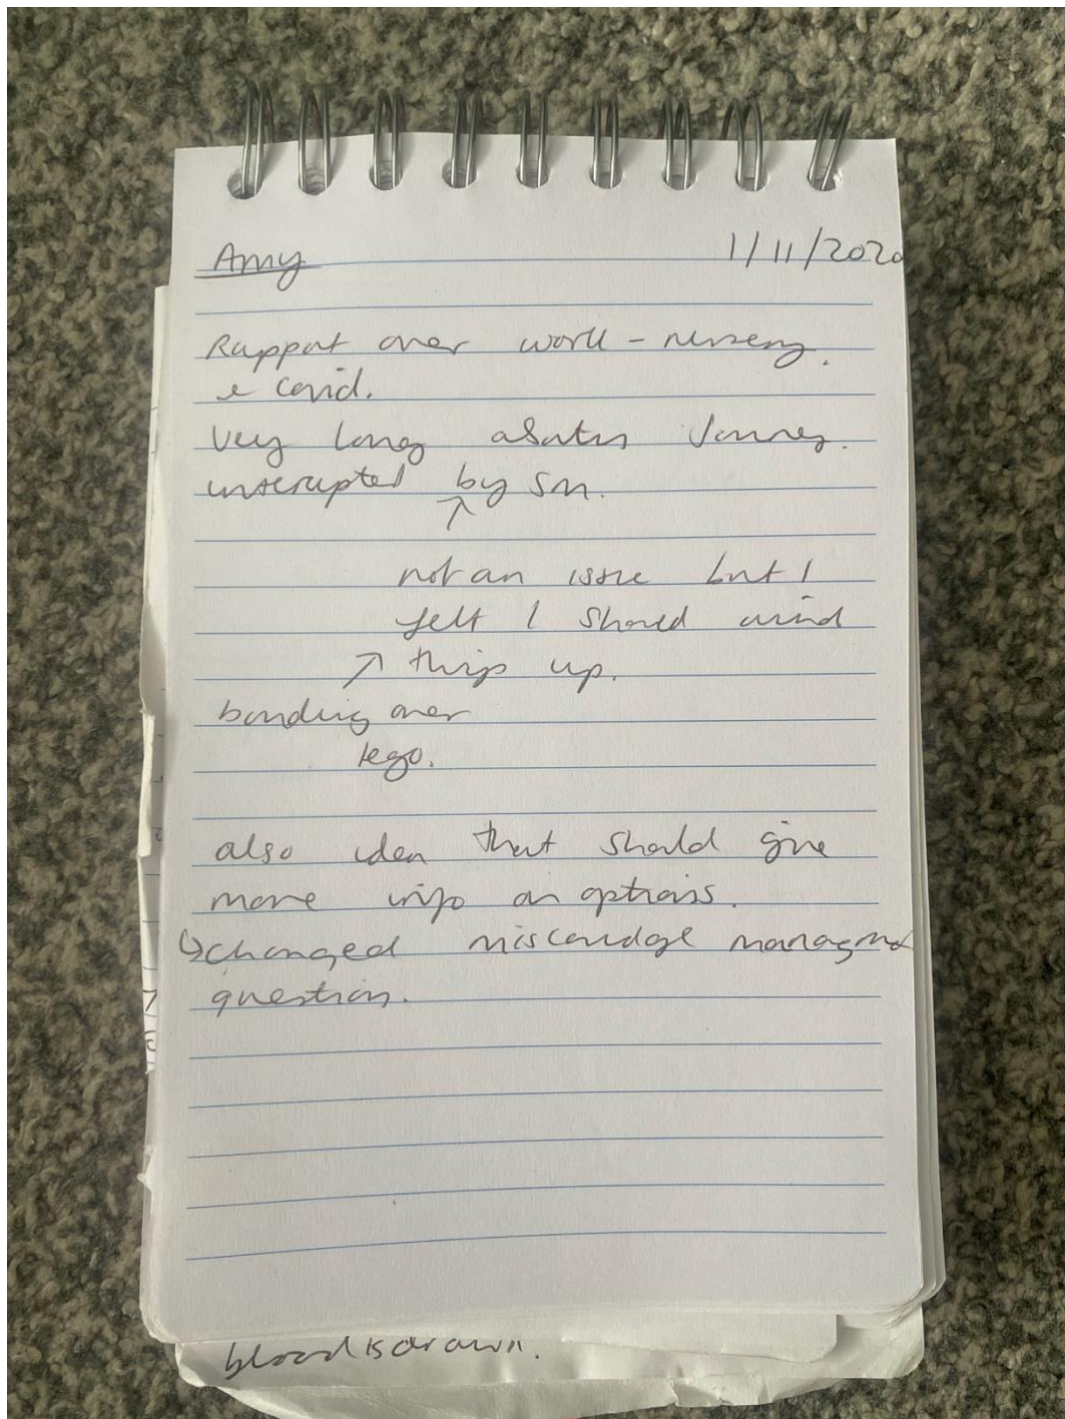 Amy 1/11/2020
Rapport over work - nursing.
& Covid.
Very long journey.
by son.
not an issue but I
felt I should wind
things up.
bonding over
lego.
also idea that should give
more info on options.
↳ changed miscarriage managment
question.
blood is drawn.